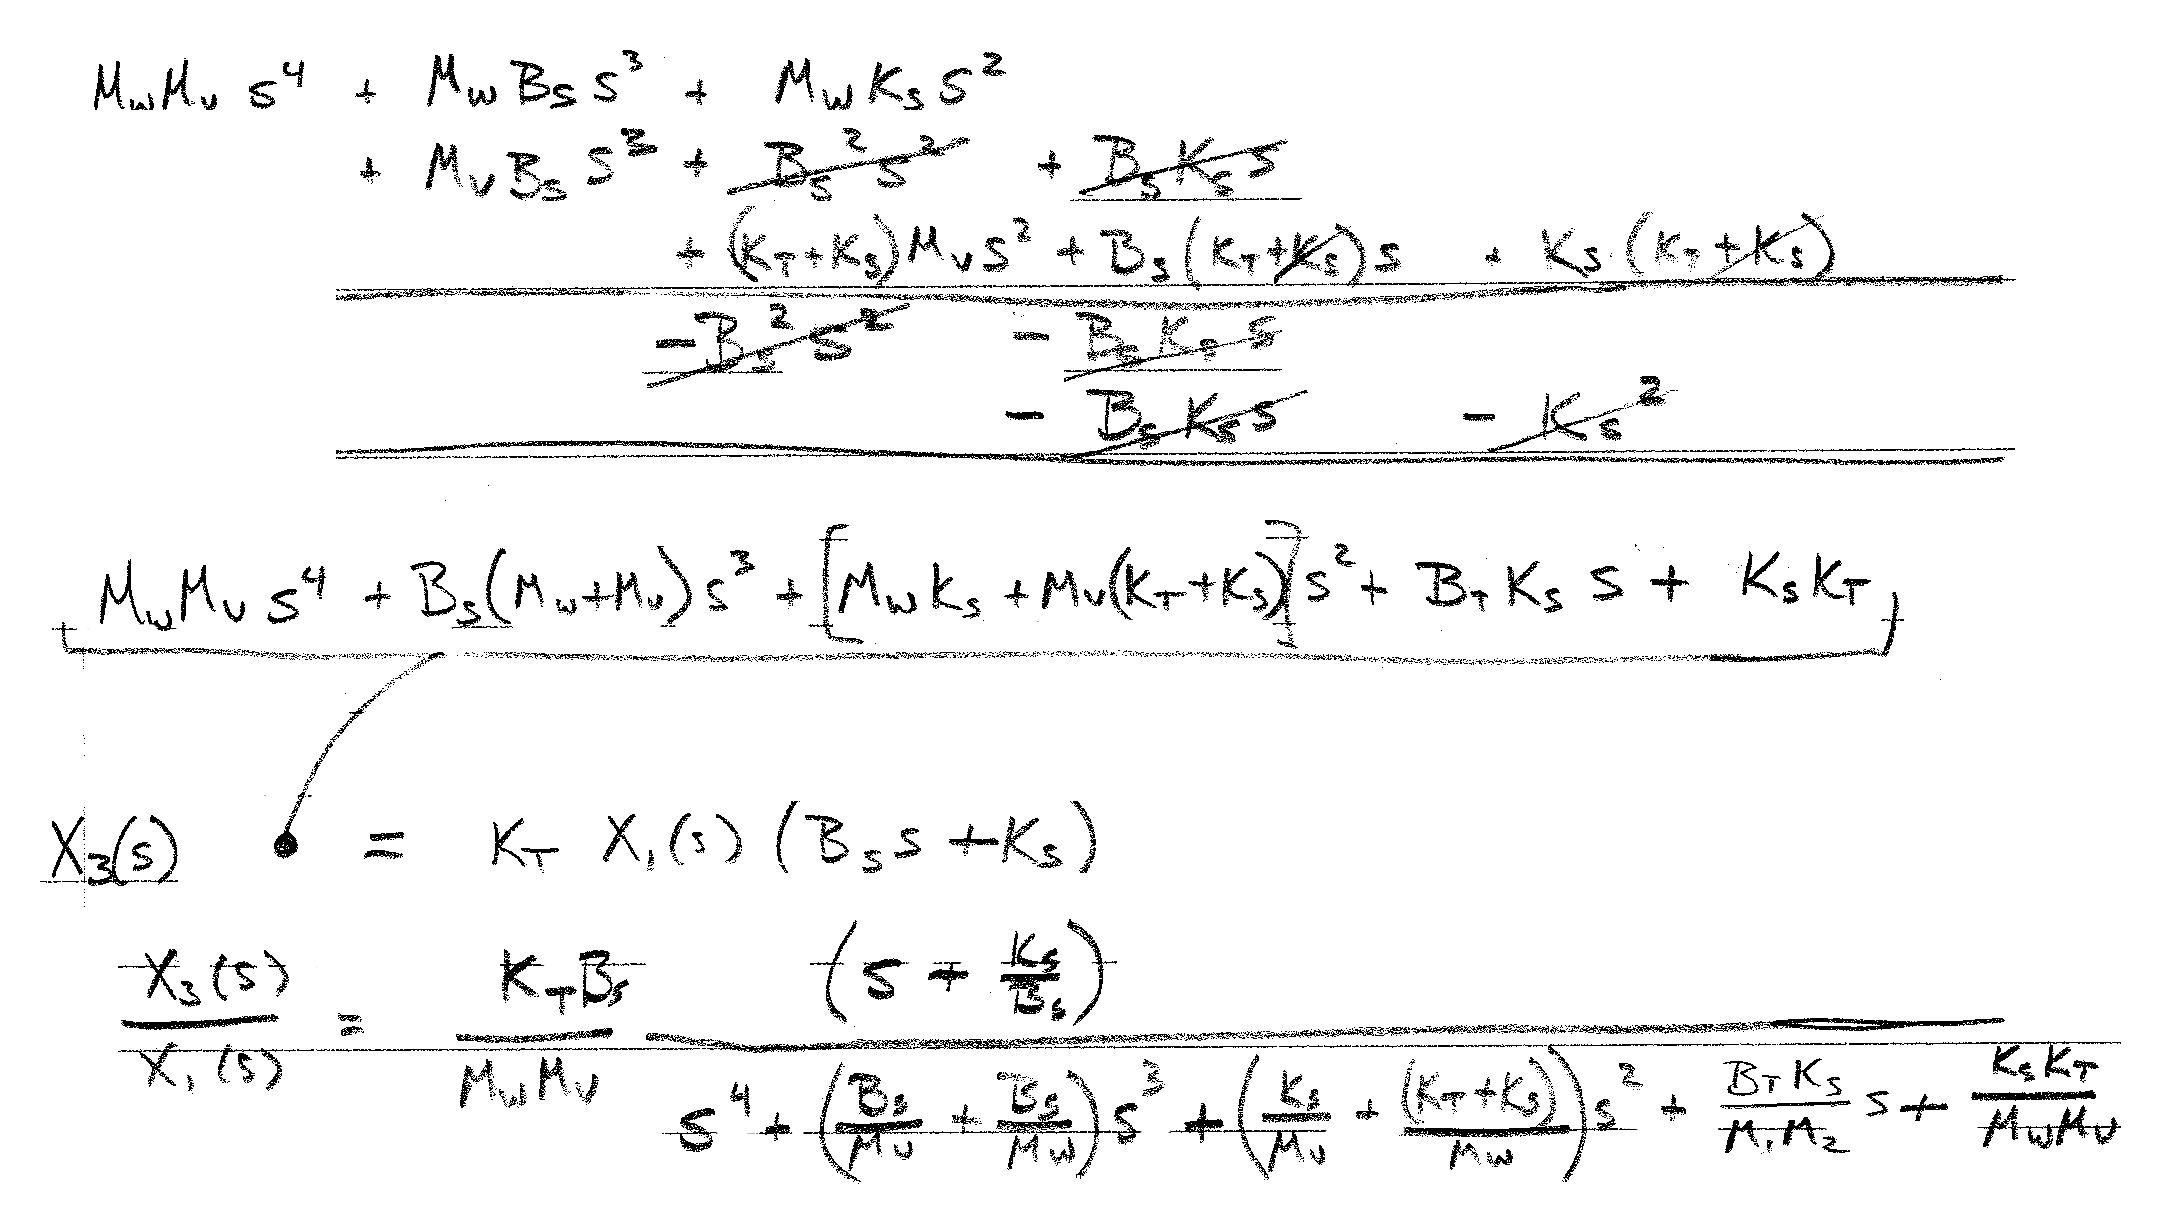 M_W M_V s^4 + M_W B_S s^3 + M_W K_S s^2
+ M_V B_S s^3 + B_S^2 s^2 + B_S K_S s
+ (K_T + K_S) M_V s^2 + B_S (K_T + K_S) s + K_S (K_T + K_S)
- B_S^2 s^2 - B_S K_S s
- B_S K_S s - K_S^2
M_W M_V s^4 + B_S (M_W + M_V) s^3 + [M_W K_S + M_V (K_T + K_S)] s^2 + B_T K_S s + K_S K_T
X_3(s) • = K_T X_1(s) (B_S s + K_S)
X_3(s) / X_1(s) = K_T B_S / M_W M_V (s + K_S / B_S) / s^4 + (B_S / M_V + B_S / M_W) s^3 + (K_S / M_V + (K_T + K_S) / M_W) s^2 + B_T K_S / M_1 M_2 s + K_S K_T / M_W M_V